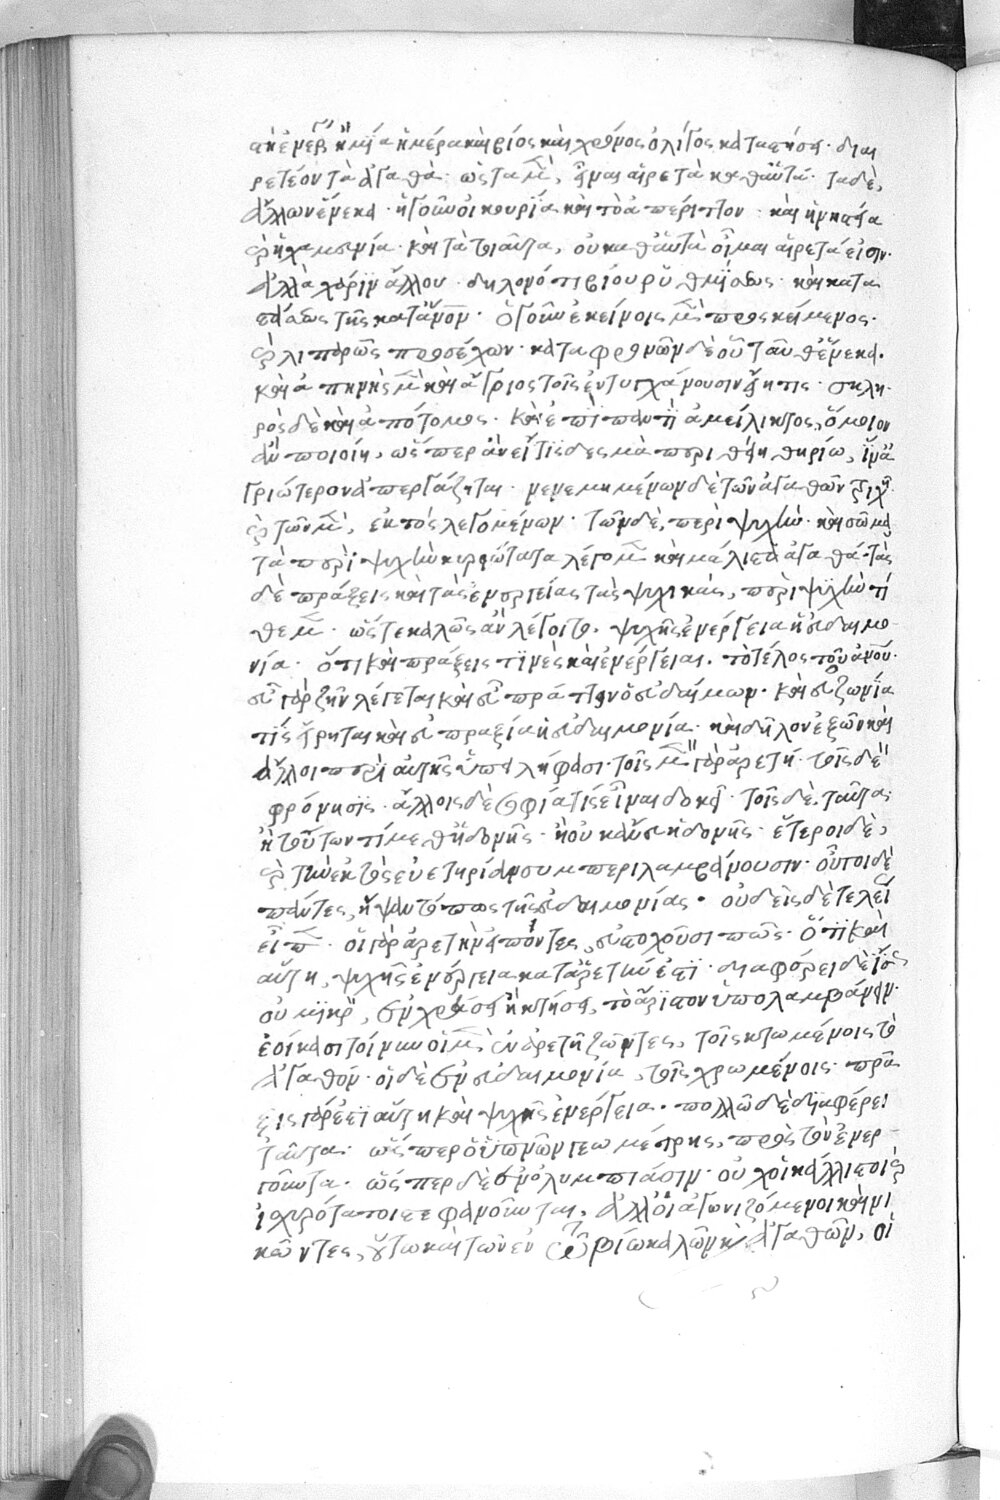 ἀνέμεθ ἢ μία ἡμέρα καὶ βίος καὶ χρόνος ὀλίγος καταστήσει. διαι
ρετέον τὰ ἀγαθά. ὡς τὰ μὲν, εἶναι αἱρετὰ καθαὑτά. τὰ δὲ,
ἄλλων ἕνεκα. ἡ γοῦν οἰκουρία καὶ τὸ ἀπέριττον. καὶ ἡ
καὶ τὰ τοιαῦτα, οὐ καθαὑτὰ οἶμαι αἱρετά εἰσιν.
ἀλλὰ χάριν ἄλλου. δηλονότι βίου ῥυθμίσεως. καὶ κατα
στάσεως τῆς κατὰ νοῦν. ὁ γοῦν ἐκείνοις μὲν προσκείμενος.
καὶ λιπαρῶς προσέχων. καταφρονῶν δὲ οὗ ταῦθ' ἕνεκα.
καὶ ἀπηνὴς μὲν καὶ ἄγριος τοῖς ἐντυγχάνουσιν εἴη τις. σκλη
ρὸς δὲ καὶ ἀπότομος. καὶ ἐπὶ παντὶ ἀμείλικτος, ὅμοιον
ἂν ποιοίη, ὥσπερ ἂν εἴ τις δεσμὰ περιθείη θηρίω, ἵνα ἀ
γριώτερον ἀπεργάζηται. νενεμημένων δὲ τῶν ἀγαθῶν τριχῆ.
καὶ τῶν μὲν, ἐκτὸς λεγομένων. τῶν δὲ, περὶ ψυχὴν. καὶ σῶμα,
τὰ περὶ ψυχὴν κυριώτατα λέγομεν καὶ μάλιστα ἀγαθά. τὰς
δὲ πράξεις καὶ τὰς ἐνεργείας τὰς ψυχικὰς, περὶ ψυχὴν τί
θεμεν. ὥστε καλῶς ἂν λέγοιτο, ψυχῆς ἐνέργεια ἡ εὐδαιμο
νία. ὅτι καὶ πράξεις τινὲς καὶ ἐνέργειαι. τὸ τέλος τοῦ ἀνου.
εὖ γὰρ ζῆν λέγεται καὶ εὖ πράττειν ὁ εὐδαίμων. καὶ εὐζωΐα
τίς εἴρηται καὶ εὐπραξία ἡ εὐδαιμονία. καὶ δῆλον ἐξ ὧν καὶ
ἄλλοι περὶ αὐτῆς ὑπειλήφασι. τοῖς μὲν γὰρ ἀρετή. τοῖς δὲ
φρόνησις. ἄλλοις δὲ σοφία τίς εἶναι δοκεῖ. τοῖς δὲ, ταῦτα.
ἢ τούτων τί μεθ' ἡδονῆς. ἢ οὐκ ἄνευ ἡδονῆς. ἕτεροι δὲ,
καὶ τὴν ἐκτὸς εὐετηρίαν συμπεριλαμβάνουσιν. οὗτοι δὲ
πάντες, ἥψαντό πως τῆς εὐδαιμονίας. οὐδεὶς δὲ τελεί
εἶπε. οἱ γὰρ ἀρετὴν εἰπόντες, εὐστοχοῦσι πῶς. ὅτι καὶ
αὕτη, ψυχῆς ἐνέργεια κατ' ἀρετὴν ἐστί. διαφέρει δὲ ἴσως
οὐ μικρὸν, ἐν χρήσει ἢ κτήσει, τὸ ἄριστον ὑπολαμβάνειν.
ἐοίκασι τοίνυν οἱ μὲν ἐν ἀρετῇ ζῶντες, τοῖς κτωμένοις τὸ
ἀγαθόν. οἱ δὲ ἐν εὐδαιμονία, τοῖς χρωμένοις. πρᾶ
ξις γάρ ἐστι αὕτη καὶ ψυχῆς ἐνέργεια. πολλῶ δὲ διαφέρει
ταῦτα. ὥσπερ ὁ ὑπνῶν γεωμέτρης, πρὸς τὸν ἐνερ
γοῦντα. ὥσπερ δὲ ἐν ὀλυμπιάσιν. οὐχ οἱ κάλλιστοι καὶ
ἰσχυρότατοι στεφανοῦνται, ἀλλ' οἱ ἀγωνιζόμενοι καὶ νι
κῶντες, οὕτω καὶ τῶν ἐν τῶ βίω καλῶν κἀγαθῶν, οἱ